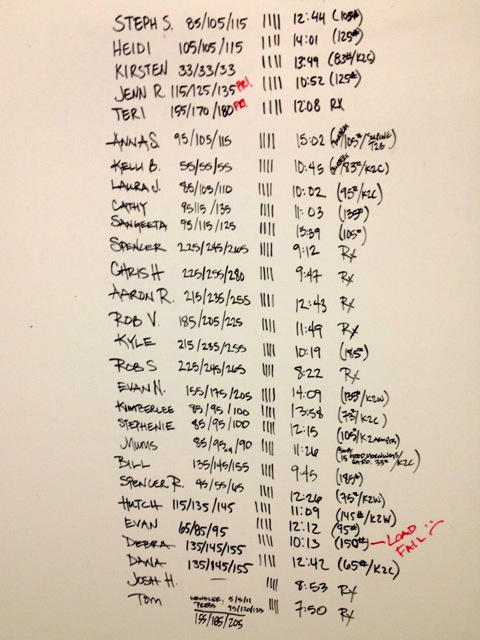 STEPH S. 85/105/115 |||| 12:44 (105#)
HEIDI 105/105/115 |||| 14:01 (125#)
KIRSTEN 33/33/33 |||| 13:49 (83#/K2C)
JENN R. 115/125/135 PR! |||| 10:52 (125#)
TERI 155/170/180 PR! |||| 12:08 RX
ANNA S. 95/105/115 |||| 15:02 105#/SUPINE T2B
KELLI B. 55/55/55 |||| 10:45 83#/K2C)
LAURA J. 85/105/110 |||| 10:02 (95#/K2C
CATHY 95/115/135 |||| 11:03 (135#)
SANGEETA 95/115/125 |||| 13:39 (105#)
SPENCER 225/245/265 |||| 9:12 Rx
CHRIS H 225/255/280 |||| 9:47 Rx
AARON R. 215/235/255 |||| 12:43 Rx
ROB V. 185/205/225 |||| 11:49 Rx
KYLE 215/235/255 |||| 10:19 (185#)
ROB S 225/245/265 |||| 8:22 Rx
EVAN N. 155/175/205 |||| 14:09 (135#/K2W)
KIMBERLEE 85/95/100 |||| 13:58 (73#/K2C)
STEPHENIE 85/95/100 |||| 12:15 (105#/K2
Mums 85/95/90 |||| 11:26 15 GOOD MORNINGS 33#/K2C)
BILL 135/145/155 |||| 9:45 (185#)
SPENCER R. 45/55/65 |||| 12:26 (75#/K2W)
HUTCH 115/135/145 |||| 11:09 (145#/K2W)
EVAN 65/85/95 |||| 12:12 (95#)
DEBRA 135/145/155 |||| 10:13 (150#) — LOAD FAIL :(
DANA 135/145/155 |||| 12:42 (65#/K2C)
JOSH H. — |||| 8:53 Rx
TOM WENDLER 5/5/11 |||| 7:50 Rx
PRESS 95/120/125
155/185/205